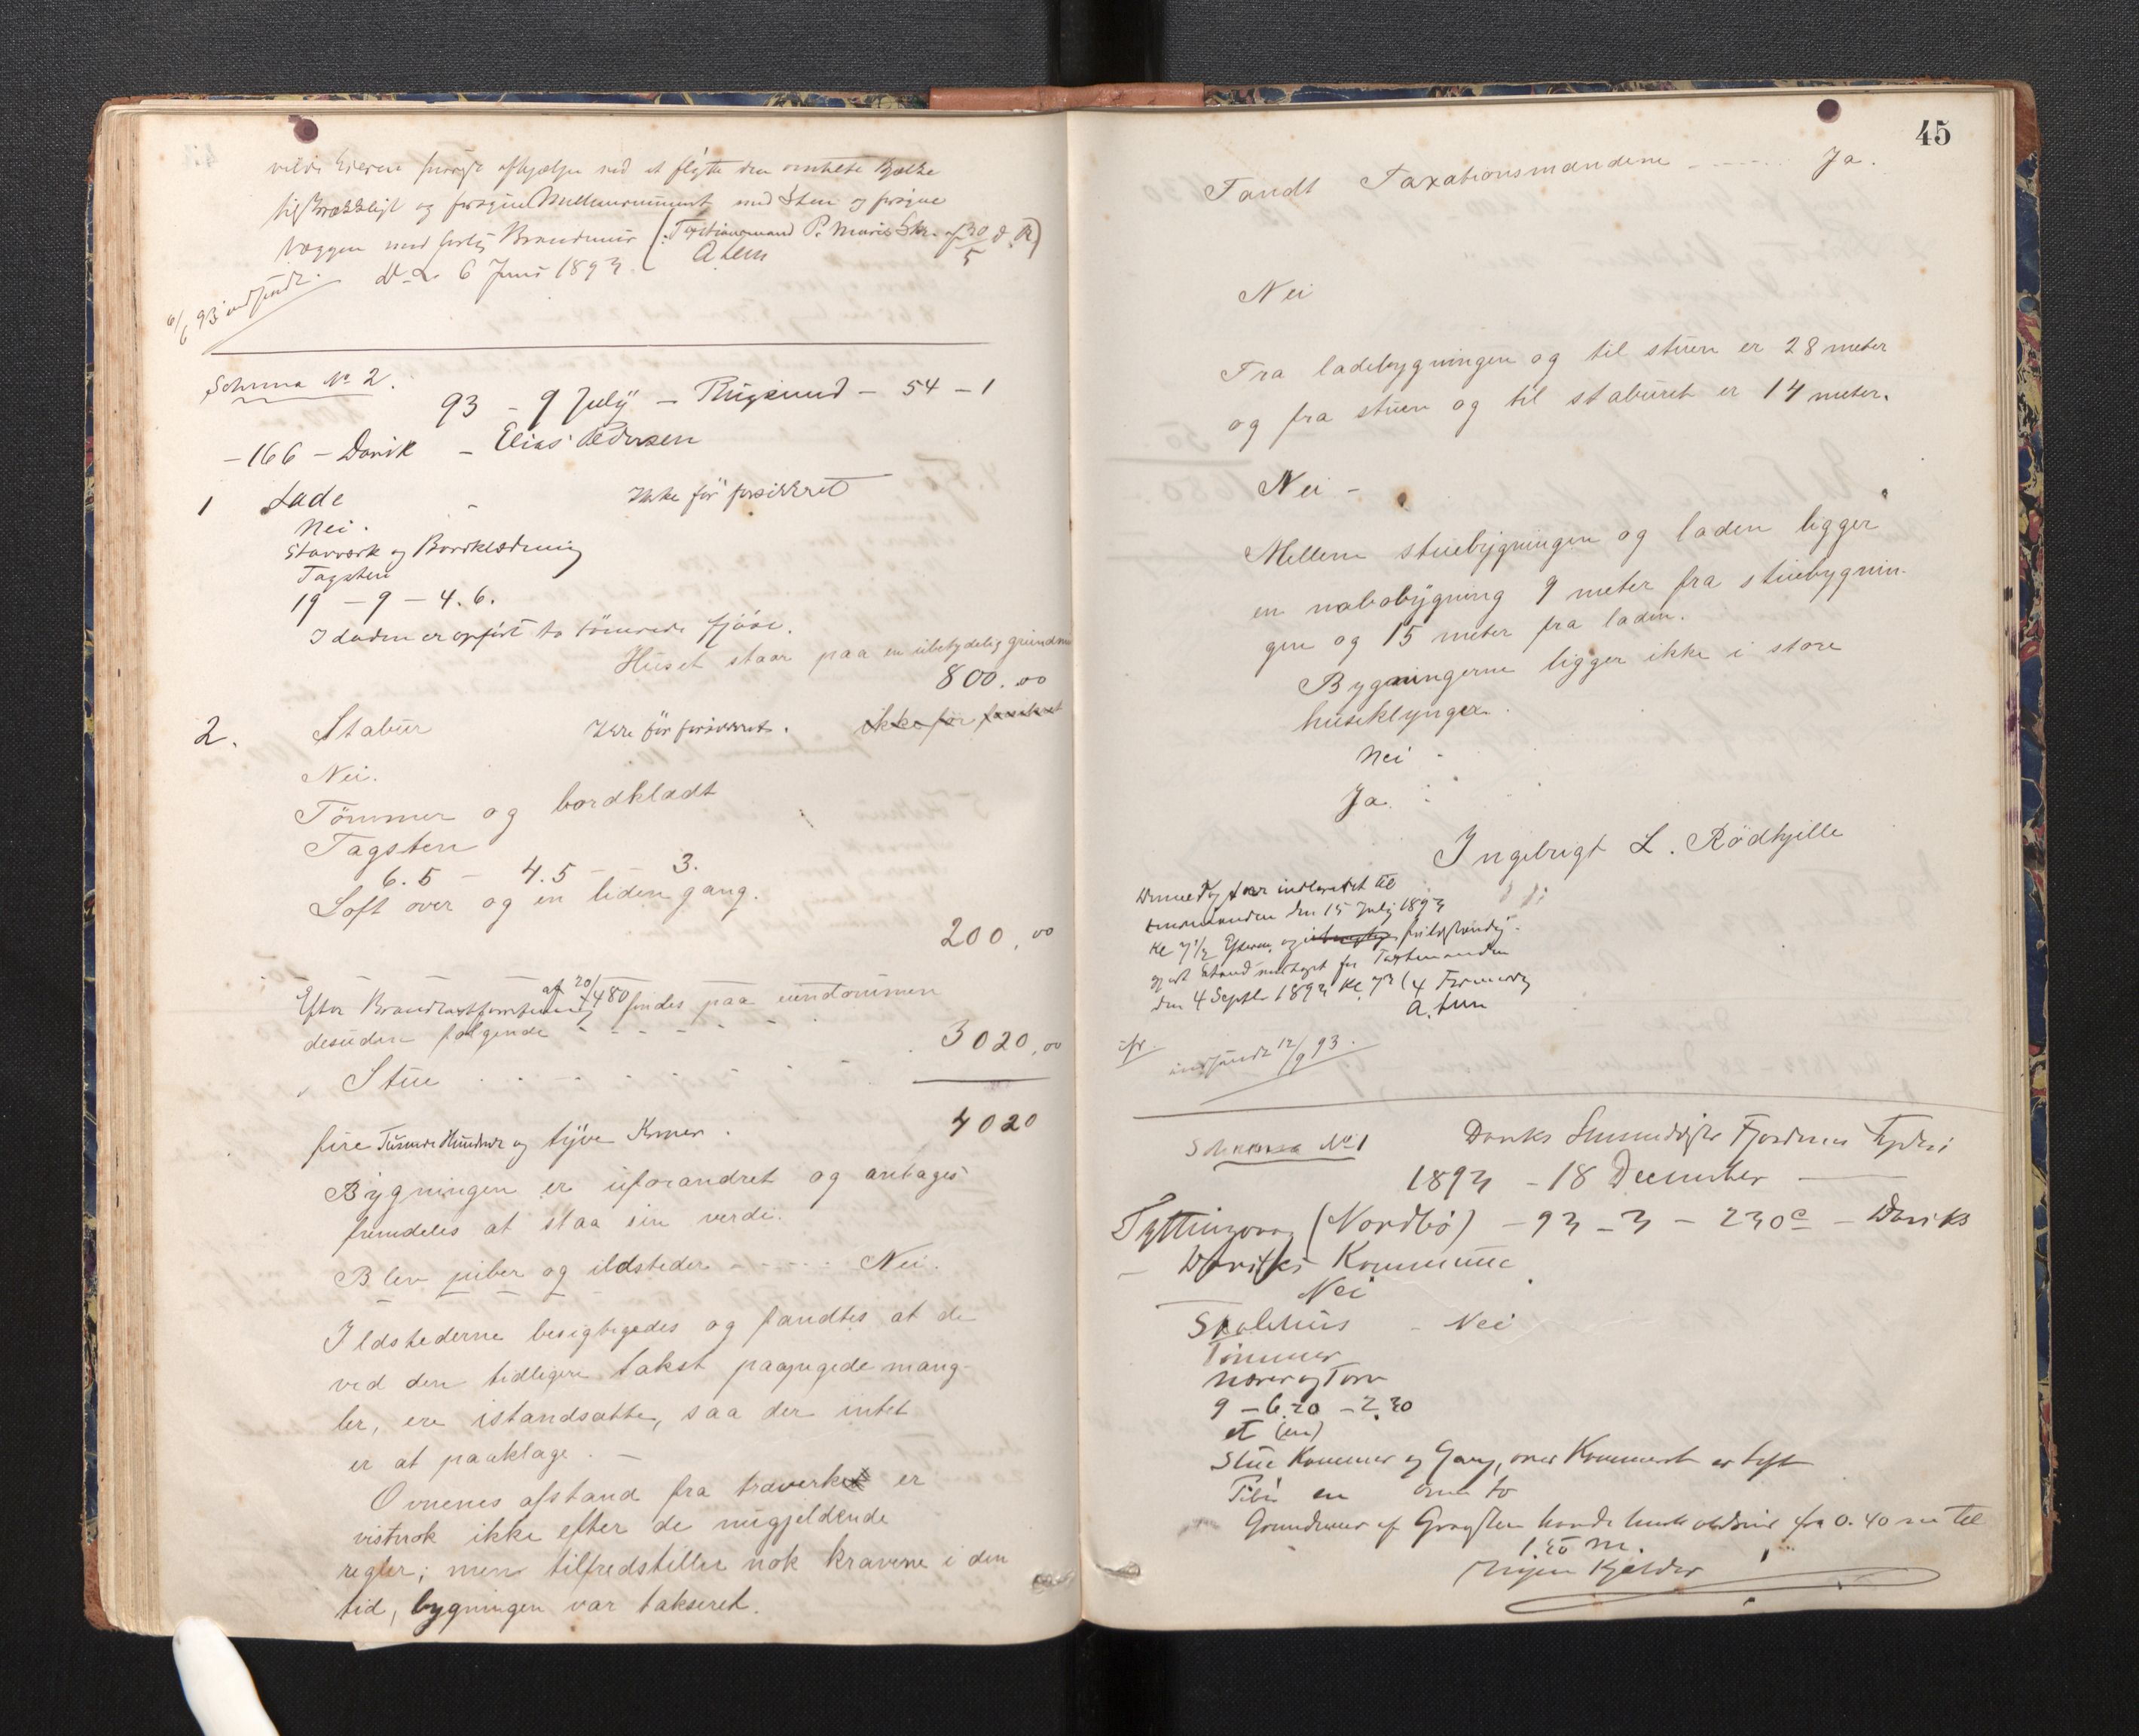 vilde Eieren afhjælpe ved at flytte den omtalte Bjælke
tilstrækkeligt og med Sten og
Væggen med Brandmur (: Taxtionsmand P. Skr. af 30/5 d. A)
D. L. 6 Juni 1893. A Lem
6/6 93 indsendt.
Schema No 2.
93 - 9 July - Rugsund - 54 - 1
- 166 - Davik - Elias Pedersen
1 Lade Ikke før forsikkret
Nei.
Stavværk og Bordklædning
Tagsten
19 - 9 - 4.6.
I Laden er opført to tømrede fjøse.
Huset staar paa en ubetydelig grundm
800.00
2. Stabur Ikke før forsikkret. ikke før forsikret
Nei.
Tømmer og bordklædt
Tagsten
6.5 - 4.5 - 3.
Loft over og en liden gang.
200,00
Efter af 20/7 480 findes paa eiendommen
desuden følgende - - - - - -
3020,00
Stue . . . . . . . .
4020
fire Tusinde Hundrede og tyve Kroner.
Bygningen er uforandret og antages
fremdeles at staa sin verdi.
Blev piber og ildsteder - - - - - Nei.
Ildstederne besigtigedes og fandtes at de
ved den tidligere takst paapegede mang-
ler, ere istandsatte, saa der intet
er at paaklage. -
Ovnenes afstand fra træverket er
vistnok ikke efter de nugjeldende
regler; men tilfredstiller nok kravene i den
tid, bygningen var takseret.
45
Fandt Taxationsmændene - - - - - Ja.
Nei
Fra ladebygningen og til stuen er 28 meter
og fra stuen og til staburet er 14 meter.
Nei -
Mellem stuebygningen og laden ligger
en nabobygning 9 meter fra stuebygnin-
gen og 15 meter fra laden.
Bygningerne ligger ikke i store
huseklynger.
Nei -
Ja.
Ingebrigt L. Rødhjille
indleveret til
den 15 July 1893
Kl 7 1/2 Efterm. og fuldstændig
for Taxtmanden
den 4 Septbr 1893 Kl. Formiddag
A. Lem
indsendt 12/9 93.
Schema No 1 Daviks Fjordenes Fogderi
1893 - 18 December
Tyttingvaag (Nordbø) - 93 - 3 - 230 c - Daviks
- Daviks Kommune
Nei
Skolehus - Nei
Tømmer
Næver og Torv
9 - 6.20 - 2.30
et (en)
Stue Kammer og Gang, over Kammeret er loft
Pibe en ovne to
Grundmur af Graasten fra 0.40 m til
m.
Ingen Kjelder